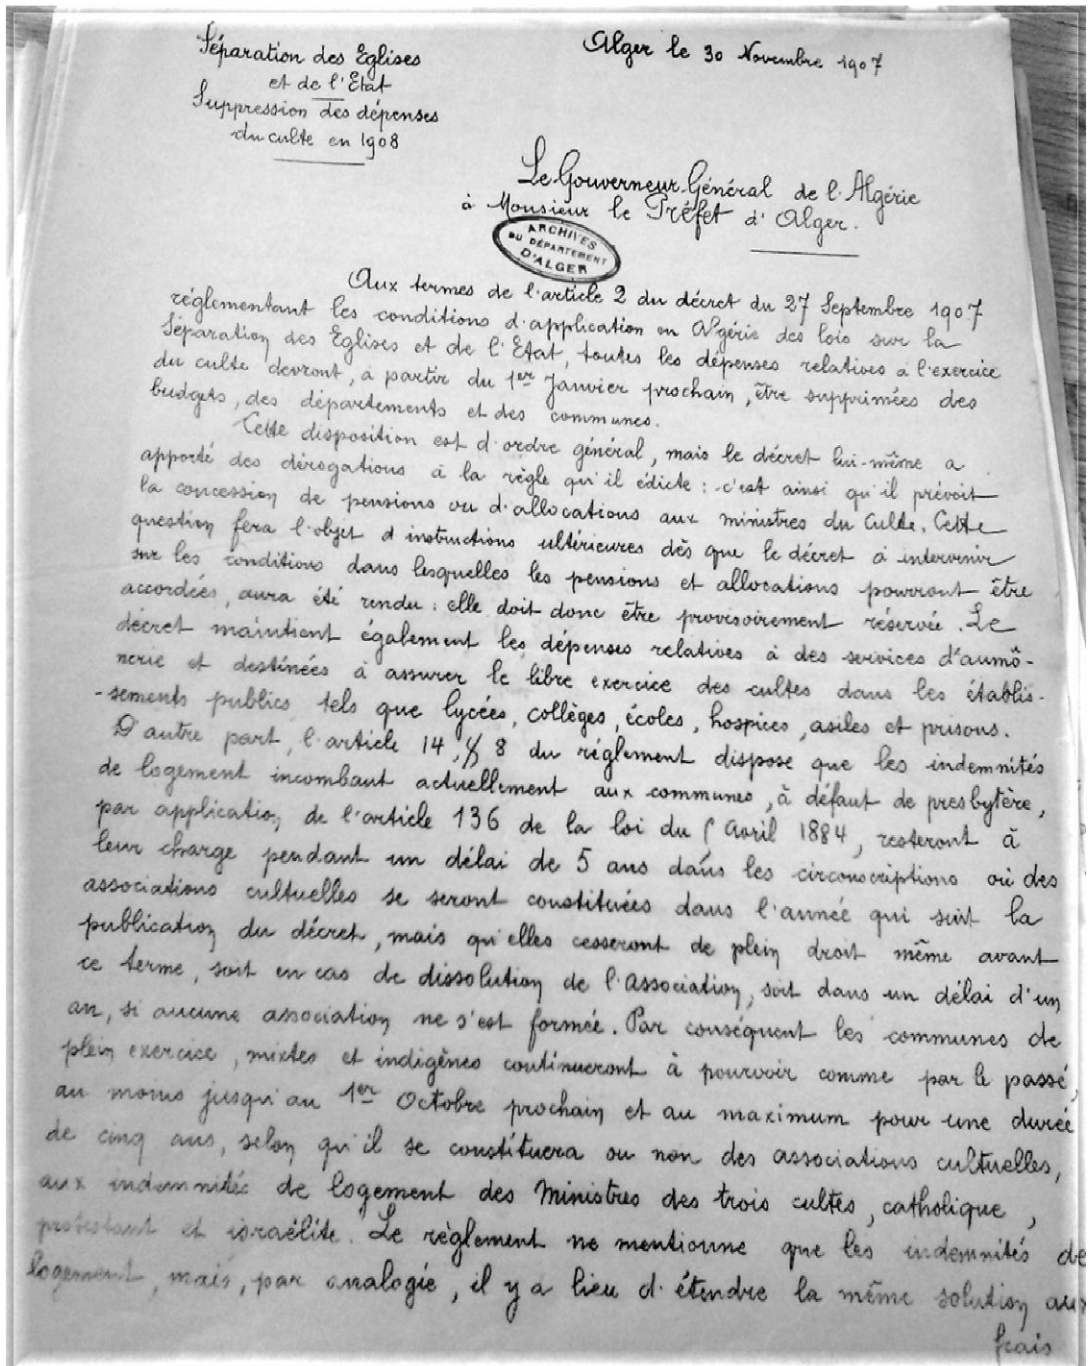 Séparation des Eglises
et de l'Etat
Suppression des dépenses
du culte en 1908
Alger le 30 Novembre 1907
Le Gouverneur Général de l'Algérie
à Monsieur le Préfet d'Alger.
ARCHIVES
DU DÉPARTEMENT
D'ALGER
Aux termes de l'article 2 du décret du 27 Septembre 1907
réglementant les conditions d'application en Algérie des lois sur la
Séparation des Eglises et de l'Etat, toutes les dépenses relatives à l'exercice
du culte devront, à partir du 1er Janvier prochain, être supprimées des
budgets, des départements et des communes.
Cette disposition est d'ordre général, mais le décret lui-même a
apporté des dérogations à la règle qu'il édicte : c'est ainsi qu'il prévoit
la concession de pensions ou d'allocations aux ministres du Culte. Cette
question fera l'objet d'instructions ultérieures dès que le décret à intervenir
sur les conditions dans lesquelles les pensions et allocations pourront être
accordées, aura été rendu : elle doit donc être provisoirement réservée. Le
décret maintient également les dépenses relatives à des services d'aumô-
nerie et destinées à assurer le libre exercice des cultes dans les établis-
-sements publics tels que lycées, collèges, écoles, hospices, asiles et prisons.
D'autre part, l'article 14, § 8 du règlement dispose que les indemnités
de logement incombant actuellement aux communes, à défaut de presbytère,
par application de l'article 136 de la loi du 5 Avril 1884, resteront à
leur charge pendant un délai de 5 ans dans les circonscriptions où des
associations cultuelles se seront constituées dans l'année qui suit la
publication du décret, mais qu'elles cesseront de plein droit même avant
ce terme, soit en cas de dissolution de l'Association, soit dans un délai d'un
an, si aucune association ne s'est formée. Par conséquent les communes de
plein exercice, mixtes et indigènes continueront à pourvoir comme par le passé,
au moins jusqu'au 1er Octobre prochain et au maximum pour une durée
de cinq ans, selon qu'il se constituera ou non des associations cultuelles,
aux indemnités de logement des Ministres des trois cultes, catholique,
protestant et israélite. Le règlement ne mentionne que les indemnités de
logement, mais, par analogie, il y a lieu d'étendre la même solution aux
frais